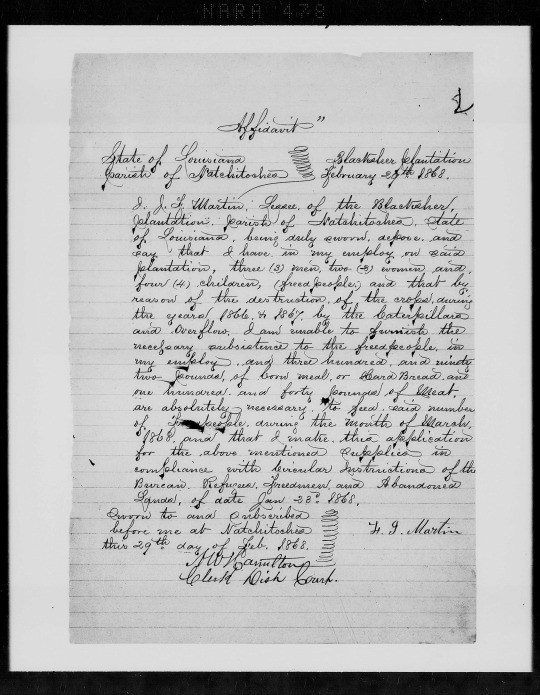 NARA 473
Affidavit"
State of Louisiana
Parish of Natchitoches
Blacksher Plantation
February 29th 1868.
I. J. F. Martin. Lessee, of the Blacksher,
plantation. parish of Natchitoches. State
of Louisiana, being duly sworn, depose, and
say that I have in my employ on said
plantation, three (3) men, two (2) women and,
four (4) children, (freedpeople) and that by
reason of the destruction, of the crops, during
the years, 1866. & 1867. by the Caterpillars
and Overflow, I am unable to furnish the
necessary subsistence to the freedpeople, in
my employ, and three hundred, and ninety
two pounds, of Corn meal, or Hard Bread, and
one hundred, and forty pounds of Meat.
are absolutely necessary, to feed, said number
of people, during the month of March,
1868, and that I make, this application
for the above mentioned Supplies in
compliance with Circular Instructions of the
Bureau. Refugees, Freedmen, and Abandoned
Lands, of date Jan 23d 1868.
Sworn to and Subscribed
before me at Natchitoches
this 29th day of Feb. 1868.
Martin
Hamilton
Clerk Dist Court.